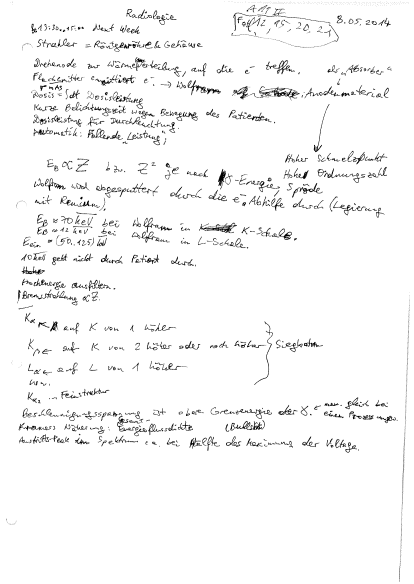 Radiologie
A19 II
Fo 12, 15, 20, 21
8.05.2014
13:30-15:00 Next Week
Strahler = Röntgenröhre Gehäuse
Drehanode zur Wärmeverteilung, auf die e⁻ treffen, als "Absorber"
emittiert e⁻ → Wolfram Anodenmaterial
Dosis = Dosisleistung
Kurze Belichtungszeit wegen Bewegung des Patienten.
Dosisleistung für Durchleuchtung.
Automatik: Fallende Leistung
Hoher Schmelzpunkt
E_B ∝ Z bzw. Z² je nach γ-Energie, Hohe Ordnungszahl
Spröde
Wolfram wird abgesputtert durch die e⁻. Abhilfe durch (Legierung
mit Renium).
E_B ≈ 70 keV bei Wolfram in K-Schale.
E_B ≈ 12 keV bei Wolfram in L-Schale.
E_ein = (50, 125) keV
10 keV geht nicht durch Patient durch.
ausfiltern.
Bremsstrahlung ∝ Z.
K_α auf K von 1 höher
K_β auf K von 2 höher oder noch höher
L_α auf L von 1 höher
usw.
Siegbahn
K_α₂ ... Feinstruktur
Beschleunigungsspannung ist obere Grenzenergie der γ. gleich bei
einen Prozess
Kramers Näherung: Energieflussdichte (Bullshit)
dem Spektrum ca. bei Hälfte des Maximums der Voltage.